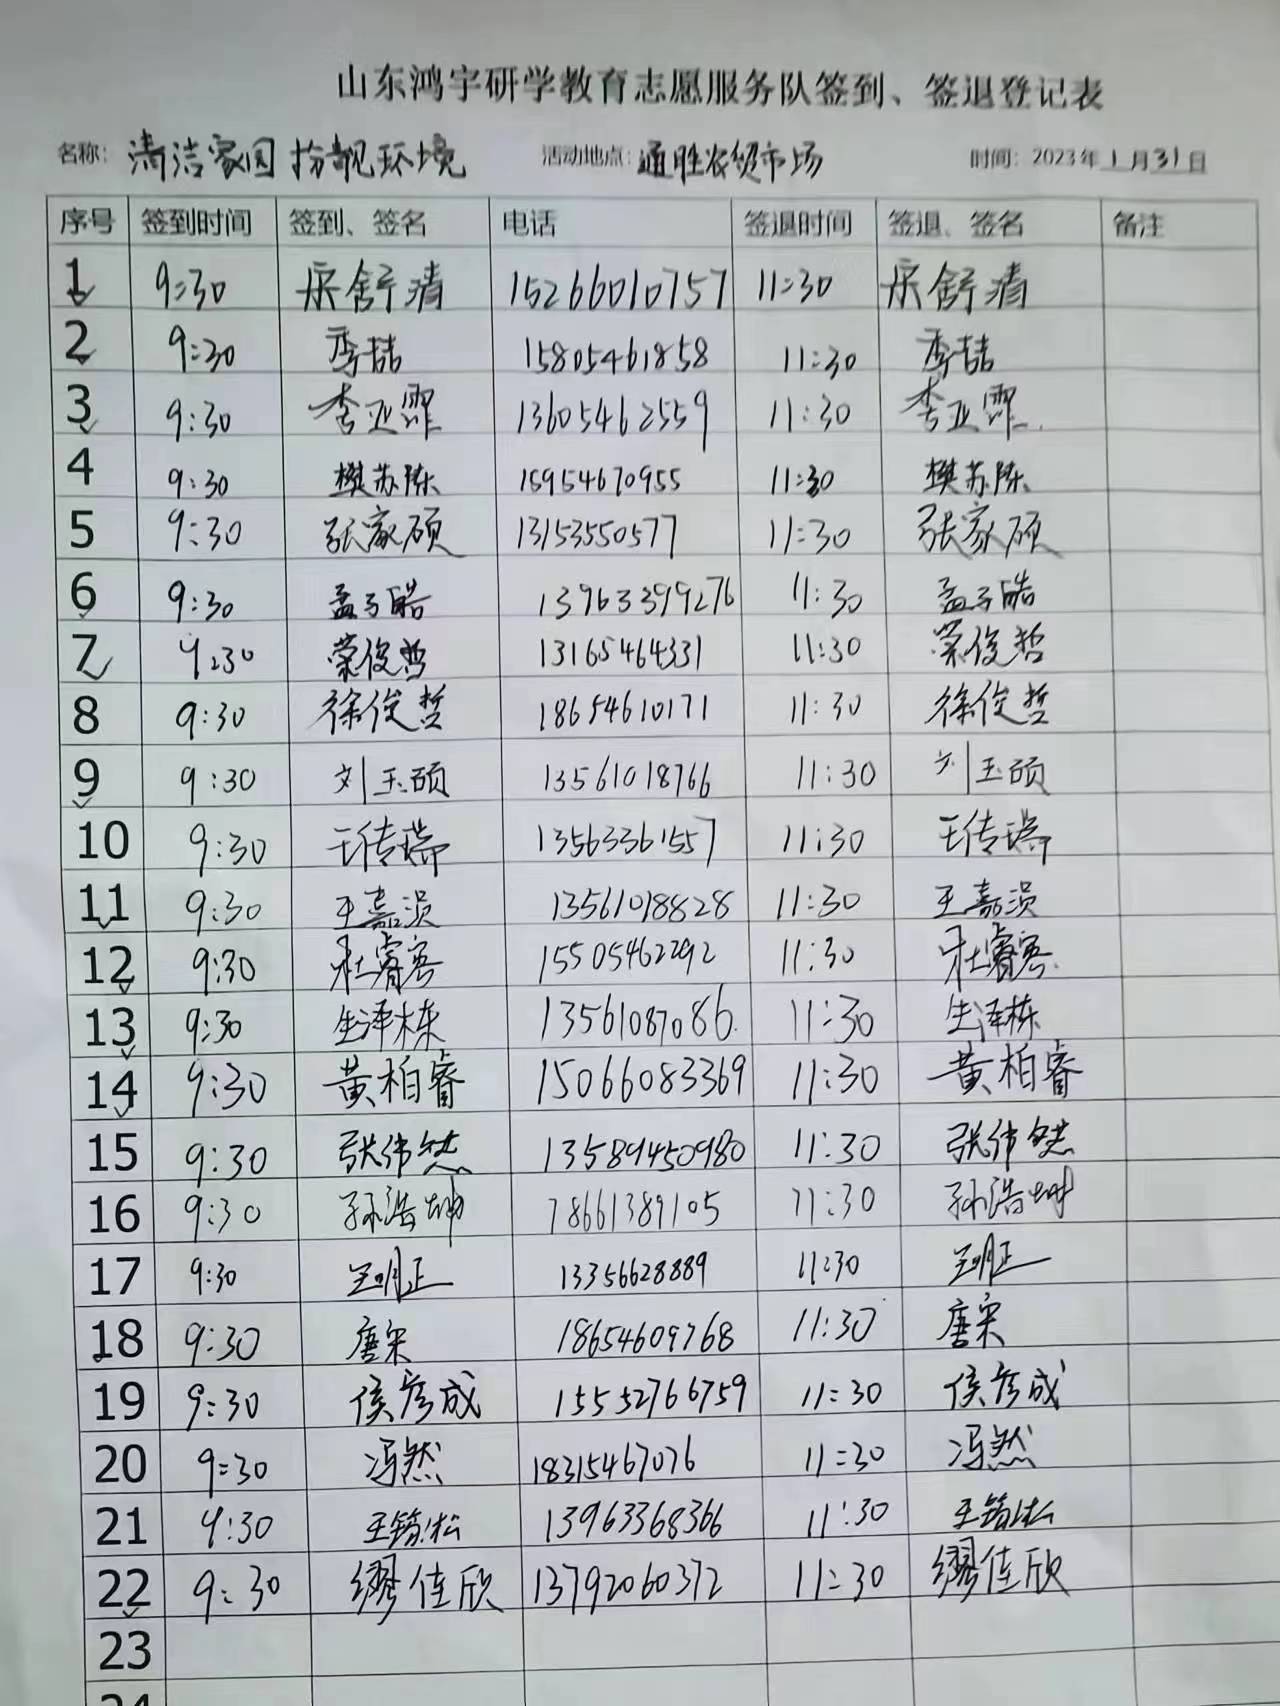 山东鸿宇研学教育志愿服务队签到、签退登记表
名称: 清洁家园 扮靓环境 活动地点: 通胜农贸市场 时间: 2023年1月31日
序号 签到时间 签到、签名 电话 签退时间 签退、签名 备注
1 9:30 宋舒清 15266010757 11:30 宋舒清
2 9:30 季喆 15805461858 11:30 季喆
3 9:30 李亚霏 13605462559 11:30 李亚霏
4 9:30 樊苏陈 15954670955 11:30 樊苏陈
5 9:30 张家硕 13153550577 11:30 张家硕
6 9:30 孟子皓 13963399276 11:30 孟子皓
7 9:30 荣俊哲 13165464331 11:30 荣俊哲
8 9:30 徐俊哲 18654610171 11:30 徐俊哲
9 9:30 刘玉硕 13561018766 11:30 刘玉硕
10 9:30 王传瑞 13563361557 11:30 王传瑞
11 9:30 王嘉涢 13561018828 11:30 王嘉涢
12 9:30 杜睿 15505462292 11:30 杜睿
13 9:30 生泽栋 13561087086 11:30 生泽栋
14 9:30 黄柏睿 15066083369 11:30 黄柏睿
15 9:30 张伟然 13589450980 11:30 张伟然
16 9:30 孙浩坤 18661389105 11:30 孙浩坤
17 9:30 王明正 13356628889 11:30 王明正
18 9:30 唐宋 18654609768 11:30 唐宋
19 9:30 侯彦成 15552766759 11:30 侯彦成
20 9:30 冯然 18315467076 11:30 冯然
21 9:30 王 松 13963368366 11:30 王 松
22 9:30 缪佳欣 13792060372 11:30 缪佳欣
23
24